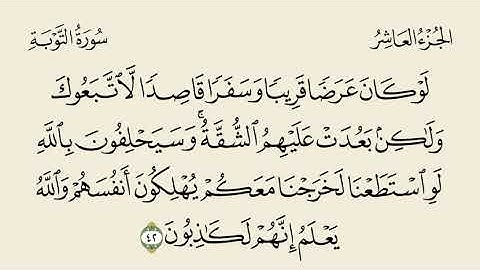 الجُزْءُ العَاشِرُ سُورَةُ التَّوْبَةِ
لَوْ كَانَ عَرَضًا قَرِيبًا وَسَفَرًا قَاصِدًا لَّاتَّبَعُوكَ
وَلَٰكِنْ بَعُدَتْ عَلَيْهِمُ الشُّقَّةُ ۚ وَسَيَحْلِفُونَ بِاللَّهِ
لَوِ اسْتَطَعْنَا لَخَرَجْنَا مَعَكُمْ يُهْلِكُونَ أَنْفُسَهُمْ وَاللَّهُ
يَعْلَمُ إِنَّهُمْ لَكَاذِبُونَ ٤٢